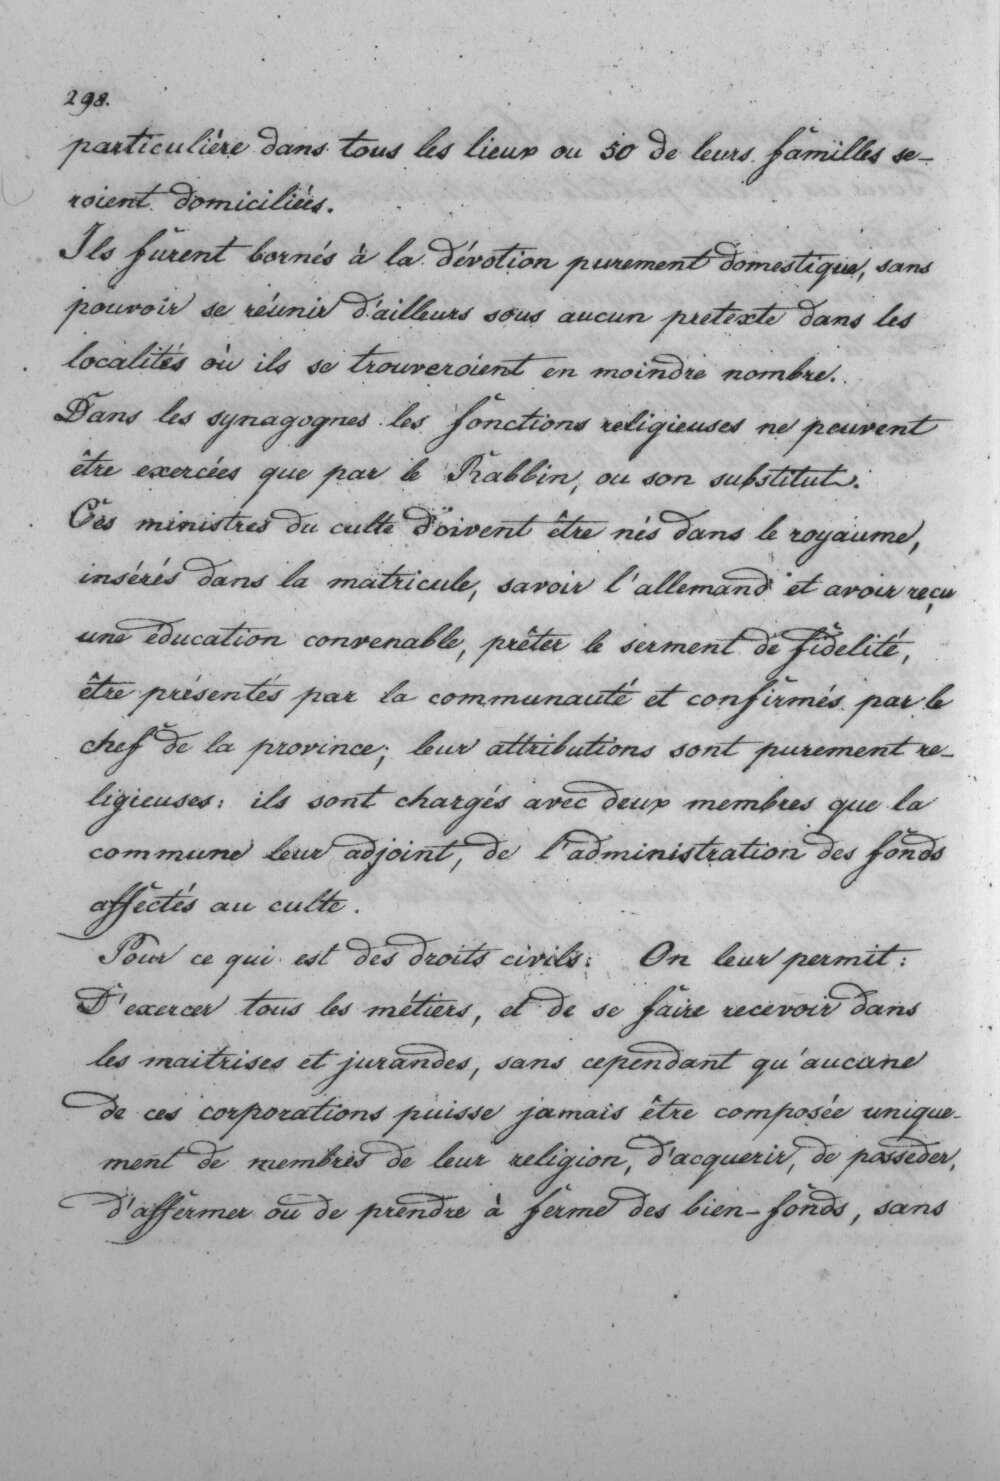 298.
particulière dans tous les lieux ou 50 de leurs familles se-
roient domiciliés.
Ils furent bornés à la dévotion purement domestique, sans
pouvoir se réunir d'ailleurs sous aucun pretexte dans les
localités où ils se trouveroient en moindre nombre.
Dans les synagogues les fonctions religieuses ne peuvent
être exercées que par le Rabbin, ou son substitut.
Ces ministres du culte doivent être nés dans le royaume,
insérés dans la matricule, savoir l'allemand et avoir reçu
une éducation convenable, prêter le serment de fidelité,
être présentés par la communauté et confirmés par le
chef de la province; leur attributions sont purement re-
ligieuses: ils sont chargés avec deux membres que la
commune leur adjoint, de l'administration des fonds
affectés au culte.
Pour ce qui est des droits civils: On leur permit:
D'exercer tous les métiers, et de se faire recevoir dans
les maitrises et jurandes, sans cependant qu'aucune
de ces corporations puisse jamais être composée unique-
ment de membres de leur religion, d'acquerir, de posseder,
d'affermer ou de prendre à ferme des bien-fonds, sans